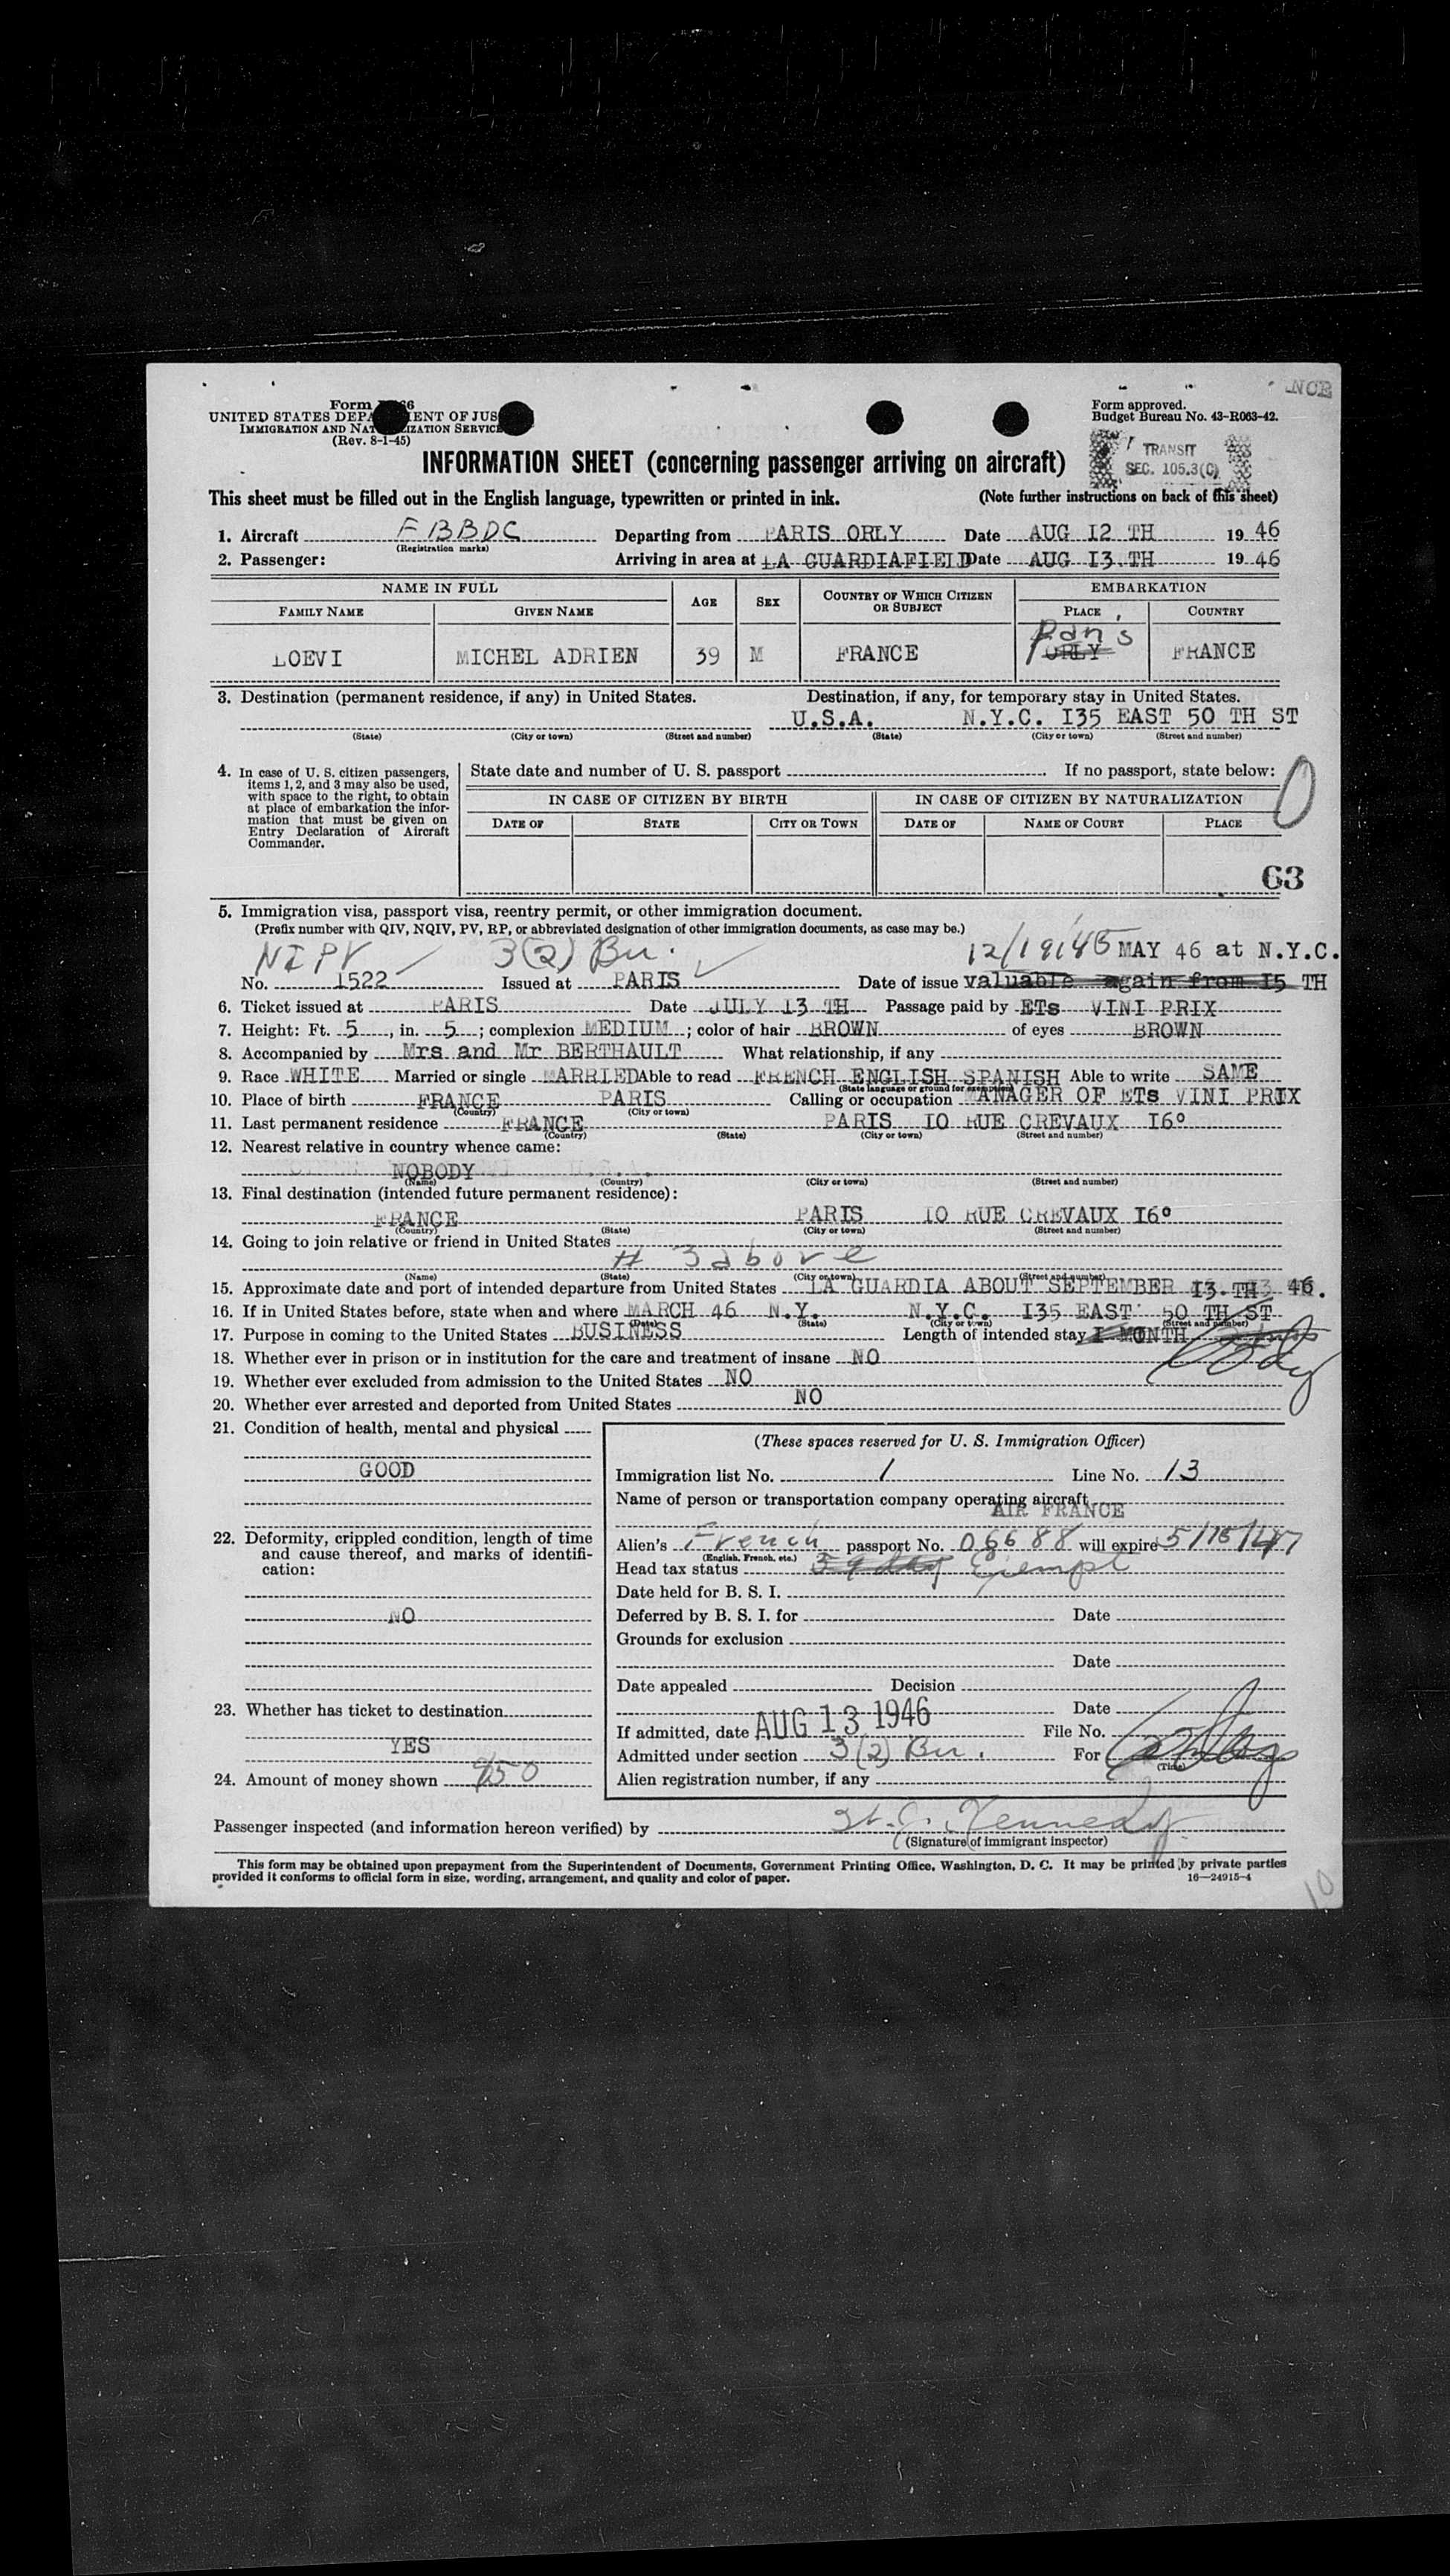 NCE
Form I-466
UNITED STATES DEPARTMENT OF JUSTICE
IMMIGRATION AND NATURALIZATION SERVICE
(Rev. 8-1-45)
Form approved.
Budget Bureau No. 43-R063-42.
TRANSIT
SEC. 105.3(C)
INFORMATION SHEET (concerning passenger arriving on aircraft)
This sheet must be filled out in the English language, typewritten or printed in ink. (Note further instructions on back of this sheet)
1. Aircraft FBBDC Departing from PARIS ORLY Date AUG I2 TH 19 46
(Registration marks)
2. Passenger: Arriving in area at LA GUARDIAFIELD Date AUG I3 TH 19 46
NAME IN FULL AGE SEX COUNTRY OF WHICH CITIZEN OR SUBJECT EMBARKATION
FAMILY NAME GIVEN NAME PLACE COUNTRY
LOEVI MICHEL ADRIEN 39 M FRANCE Paris ORLY FRANCE
3. Destination (permanent residence, if any) in United States. Destination, if any, for temporary stay in United States.
U.S.A. N.Y.C. I35 EAST 50 TH ST
(State) (City or town) (Street and number) (State) (City or town) (Street and number)
4. In case of U. S. citizen passengers, items 1, 2, and 3 may also be used, with space to the right, to obtain at place of embarkation the information that must be given on Entry Declaration of Aircraft Commander.
State date and number of U. S. passport If no passport, state below:
IN CASE OF CITIZEN BY BIRTH IN CASE OF CITIZEN BY NATURALIZATION
DATE OF STATE CITY OR TOWN DATE OF NAME OF COURT PLACE
63
5. Immigration visa, passport visa, reentry permit, or other immigration document.
(Prefix number with QIV, NQIV, PV, RP, or abbreviated designation of other immigration documents, as case may be.)
NIPV 3(2) Bu. 12/19/45 MAY 46 at N.Y.C.
No. 1522 Issued at PARIS Date of issue valuable again from I5 TH
6. Ticket issued at PARIS Date JULY I3 TH Passage paid by ETs VINI PRIX
7. Height: Ft. 5, in. 5; complexion MEDIUM; color of hair BROWN of eyes BROWN
8. Accompanied by Mrs and Mr BERTHAULT What relationship, if any
9. Race WHITE Married or single MARRIED Able to read FRENCH ENGLISH SPANISH Able to write SAME
(State language or ground for exemption)
10. Place of birth FRANCE PARIS Calling or occupation MANAGER OF ETs VINI PRIX
(Country) (City or town)
11. Last permanent residence FRANCE PARIS IO RUE CREVAUX I6°
(Country) (State) (City or town) (Street and number)
12. Nearest relative in country whence came:
NOBODY
(Name) (Country) (City or town) (Street and number)
13. Final destination (intended future permanent residence):
FRANCE PARIS IO RUE CREVAUX I6°
(Country) (State) (City or town) (Street and number)
14. Going to join relative or friend in United States
# 3 above
(Name) (State) (City or town) (Street and number)
15. Approximate date and port of intended departure from United States LA GUARDIA ABOUT SEPTEMBER I3.TH 46.
16. If in United States before, state when and where MARCH 46 N.Y. N.Y.C. I35 EAST 50 TH ST
(Date) (State) (City or town) (Street and number)
17. Purpose in coming to the United States BUSINESS Length of intended stay I MONTH
18. Whether ever in prison or in institution for the care and treatment of insane NO
19. Whether ever excluded from admission to the United States NO
20. Whether ever arrested and deported from United States NO
21. Condition of health, mental and physical
GOOD
22. Deformity, crippled condition, length of time and cause thereof, and marks of identification:
NO
23. Whether has ticket to destination
YES
24. Amount of money shown 950
(These spaces reserved for U. S. Immigration Officer)
Immigration list No. 1 Line No. 13
Name of person or transportation company operating aircraft
AIR FRANCE
Alien's French passport No. 06688 will expire 5/15/47
(English, French, etc.)
Head tax status Exempt
Date held for B. S. I.
Deferred by B. S. I. for Date
Grounds for exclusion
Date
Date appealed Decision
Date
If admitted, date AUG 13 1946 File No.
Admitted under section 3(2) Bu. For
(Time)
Alien registration number, if any
Passenger inspected (and information hereon verified) by Kennedy
(Signature of immigrant inspector)
This form may be obtained upon prepayment from the Superintendent of Documents, Government Printing Office, Washington, D. C. It may be printed by private parties
provided it conforms to official form in size, wording, arrangement, and quality and color of paper. 16—24915-4
10